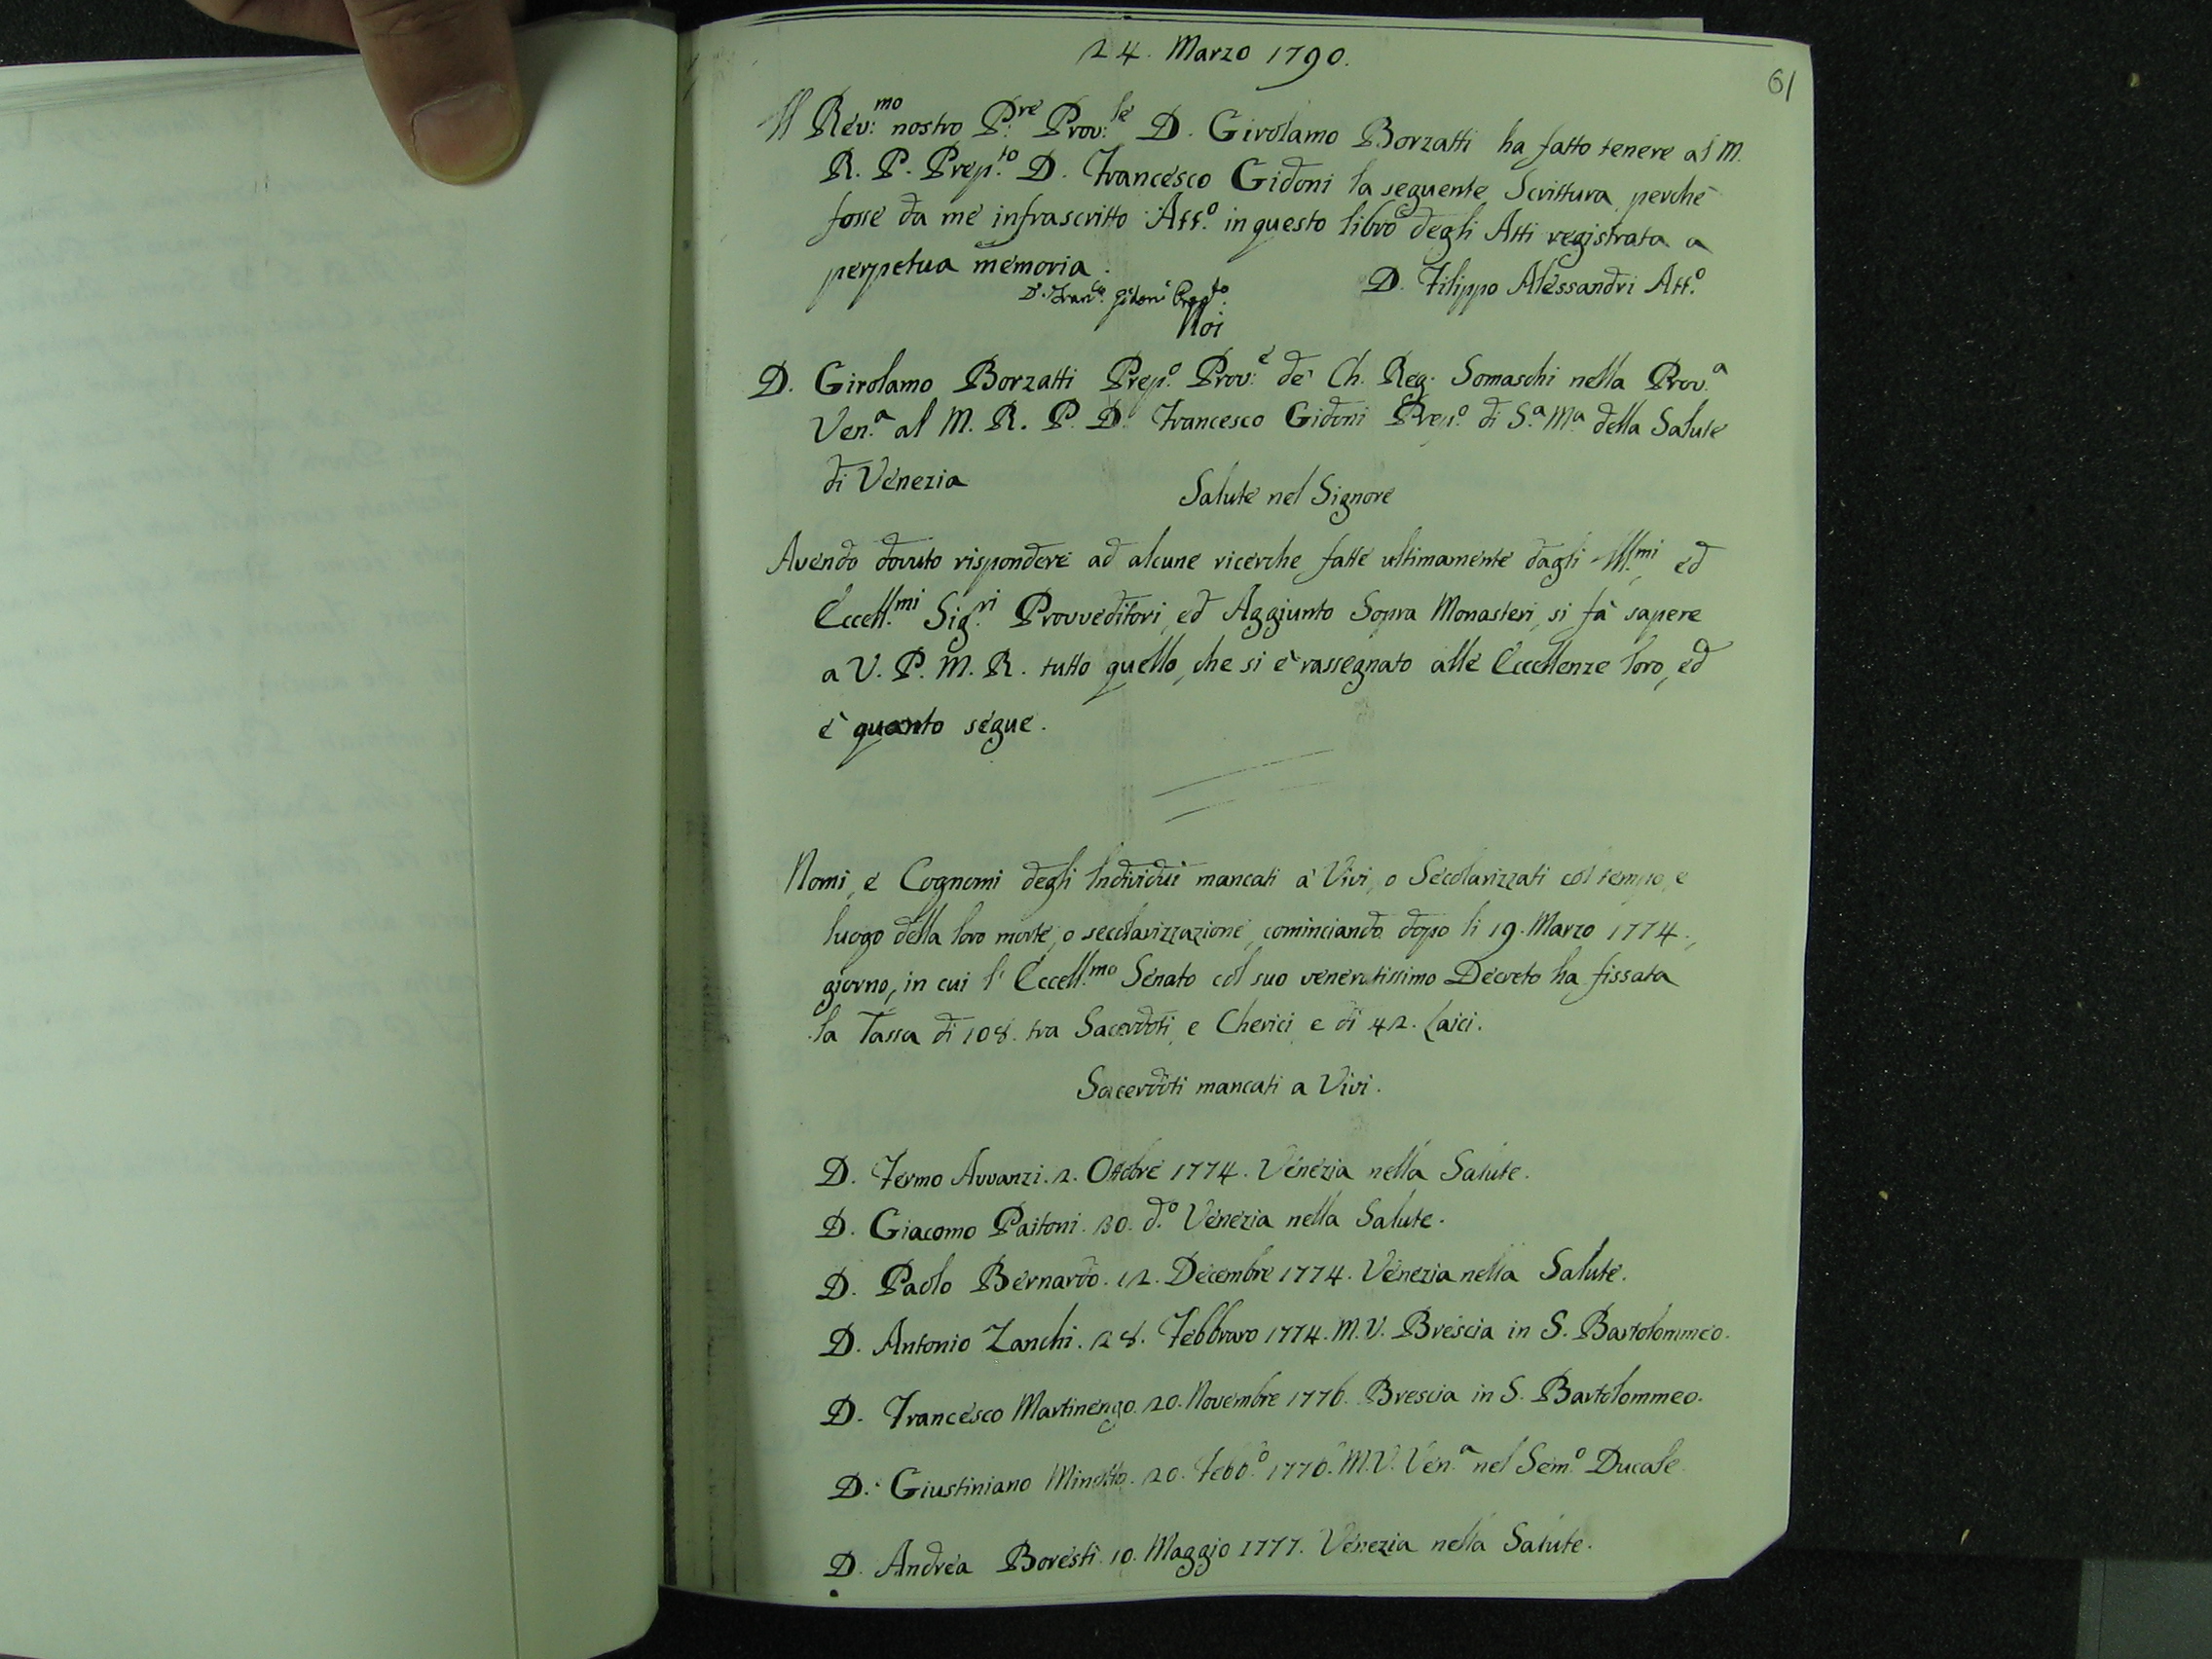 24. Marzo 1790.
61
Il Rev:mo nostro P:re Prov:le D. Girolamo Borzatti ha fatto tenere al M.
R. P. Prep.to D. Francesco Gidoni la seguente Scrittura, perchè
fosse da me infrascritto Att.o in questo libro degli Atti registrata a
perpetua memoria.
D. Filippo Alessandri Att.o
D. Fran.co Gidoni Prep.to
Noi
D. Girolamo Borzatti Prep.o Prov:e de' Ch. Reg. Somaschi nella Prov.a
Ven.a al M. R. P. D. Francesco Gidoni Prep.o di S.a M.a della Salute
di Venezia
Salute nel Signore
Avendo dovuto rispondere ad alcune ricerche fatte ultimamente dagli Ill.mi ed
Eccell.mi Sig.ri Provveditori, ed Aggiunto Sopra Monasteri, si fà sapere
a V. P. M. R. tutto quello, che si è rassegnato alle Eccellenze loro, ed
è quanto segue.
Nomi, e Cognomi degli Individui mancati a' Vivi, o Secolarizzati col tempo, e
luogo della loro morte, o secolarizzazione, cominciando dopo li 19. Marzo 1774.,
giorno, in cui l' Eccell.mo Senato col suo veneratissimo Decreto ha fissata
la Tassa di 108. tra Sacerdoti, e Cherici e di 42. Laici.
Sacerdoti mancati a Vivi.
D. Fermo Avvanzi. 2. Ottobre 1774. Venezia nella Salute.
D. Giacomo Paitoni. 30. d.o Venezia nella Salute.
D. Paolo Bernardo. 12. Decembre 1774. Venezia nella Salute.
D. Antonio Zanchi. 28. Febbraro 1774. M.V. Brescia in S. Bartolommeo.
D. Francesco Martinengo. 20. Novembre 1776. Brescia in S. Bartolommeo.
D. Giustiniano Minotto. 20. Febb.o 1776. M.V. Ven.a nel Sem.o Ducale
D. Andrea Boresti. 10. Maggio 1777. Venezia nella Salute.